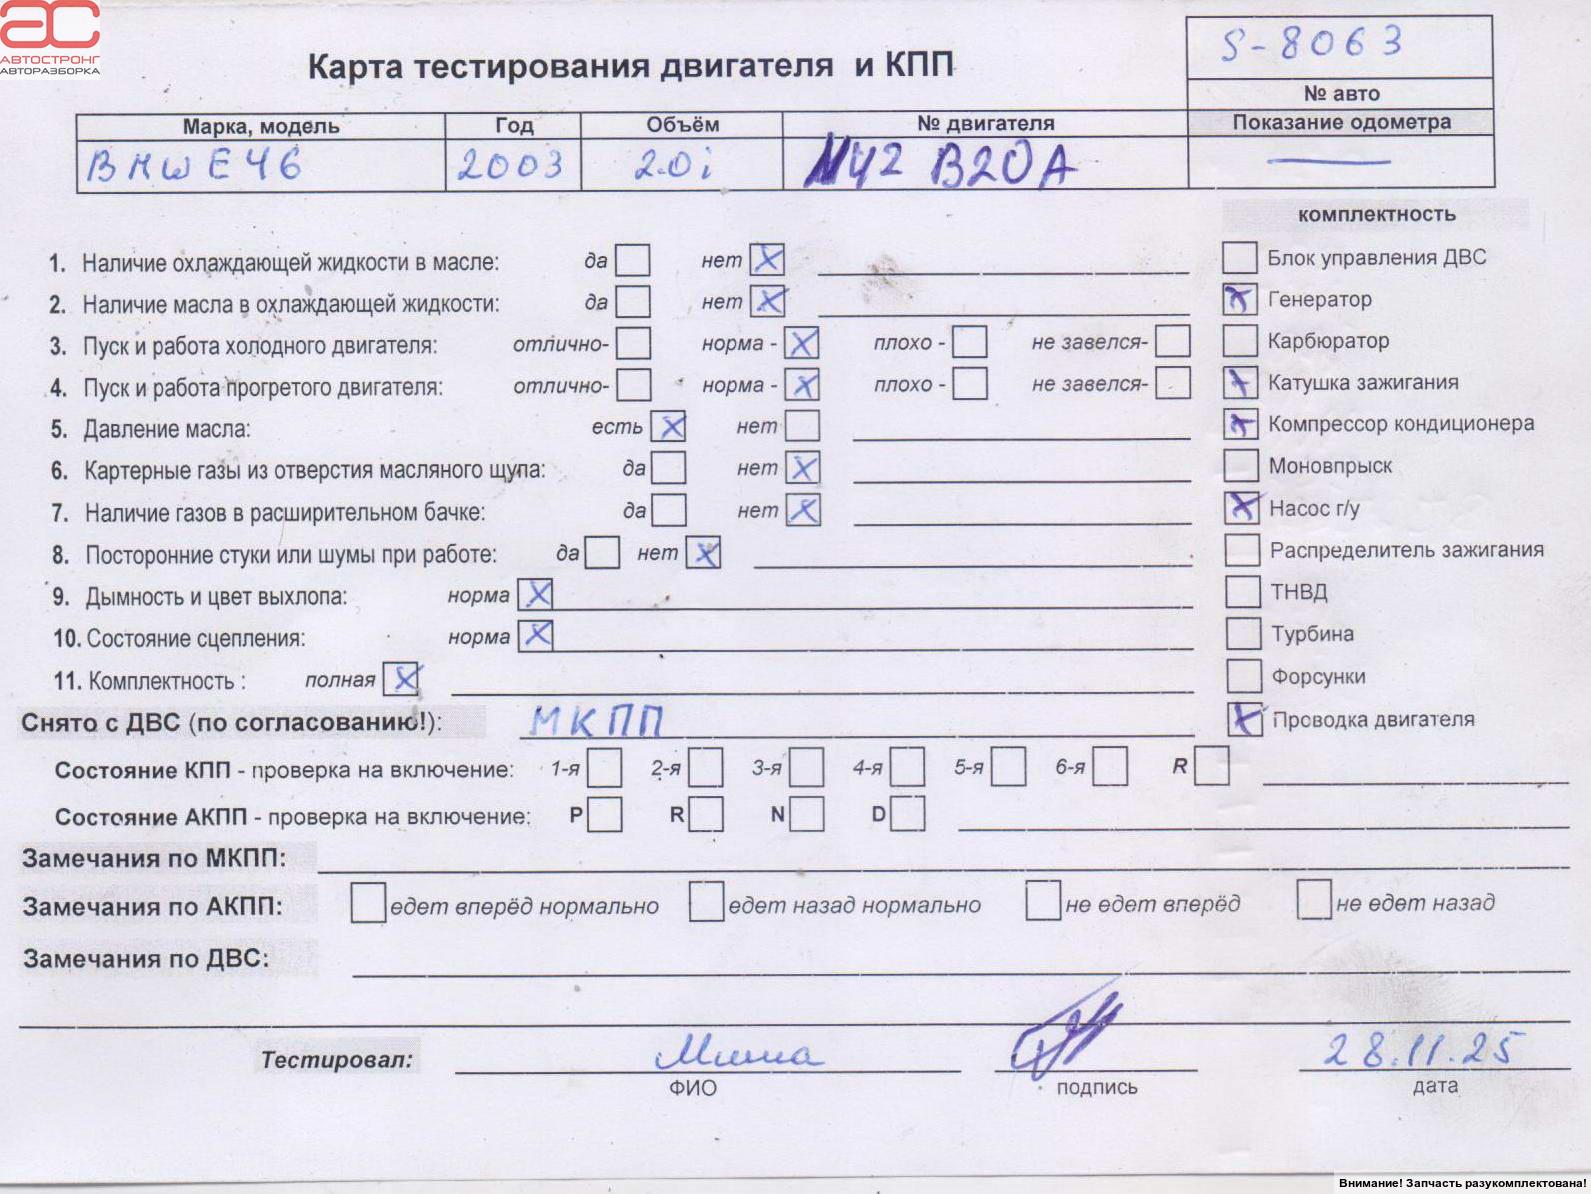 АС
АВТОСТРОНГ
АВТОРАЗБОРКА
Карта тестирования двигателя и КПП
S-8063
№ авто
Марка, модель Год Объём № двигателя Показание одометра
BMW E46 2003 2.0i N42 B20A —
комплектность
1. Наличие охлаждающей жидкости в масле: да нет
Блок управления ДВС
2. Наличие масла в охлаждающей жидкости: да нет
Генератор
3. Пуск и работа холодного двигателя: отлично- норма - плохо - не завелся-
Карбюратор
4. Пуск и работа прогретого двигателя: отлично- норма - плохо - не завелся-
Катушка зажигания
5. Давление масла: есть нет
Компрессор кондиционера
6. Картерные газы из отверстия масляного щупа: да нет
Моновпрыск
7. Наличие газов в расширительном бачке: да нет
Насос г/у
8. Посторонние стуки или шумы при работе: да нет
Распределитель зажигания
9. Дымность и цвет выхлопа: норма
ТНВД
10. Состояние сцепления: норма
Турбина
11. Комплектность : полная
Форсунки
Снято с ДВС (по согласованию!): МКПП
Проводка двигателя
Состояние КПП - проверка на включение: 1-я 2-я 3-я 4-я 5-я 6-я R
Состояние АКПП - проверка на включение: P R N D
Замечания по МКПП:
Замечания по АКПП: едет вперёд нормально едет назад нормально не едет вперёд не едет назад
Замечания по ДВС:
Тестировал: Миша 28.11.25
ФИО подпись дата
Внимание! Запчасть разукомплектована!